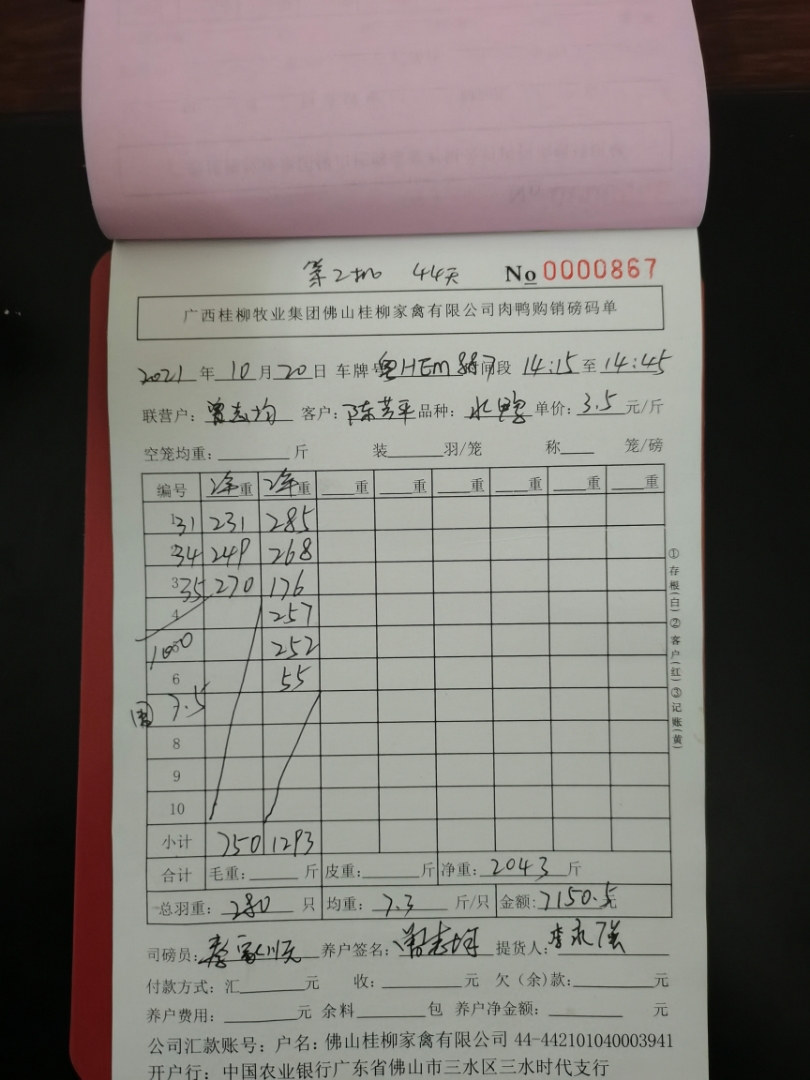 第2批 44天 No 0000867
广西桂柳牧业集团佛山桂柳家禽有限公司肉鸭购销磅码单
2021 年 10 月 20 日 车牌号 粤HEM 时间段 14:15 至 14:45
联营户: 曾志均 客户: 陈芳平 品种: 水鸭 单价: 3.5 元/斤
空笼均重: 斤 装 羽/笼 称 笼/磅
编号 重 重 重 重 重 重 重 重
1 31 231 285
2 34 249 268
3 35 270 176
4 257
1000 252
6 55
7.5
8
9
10
小计 750 1293
合计 毛重: 斤 皮重: 斤 净重: 2043 斤
总羽重: 280 只 均重: 7.3 斤/只 金额: 7150.5 元
司磅员: 养户签名: 曾志均 提货人: 李永强
付款方式: 汇 元 收: 元 欠(余)款: 元
养户费用: 元 余料 包 养户净金额: 元
公司汇款账号: 户名: 佛山桂柳家禽有限公司 44-442101040003941
开户行: 中国农业银行广东省佛山市三水区三水时代支行
①存根(白)②客户(红)③记账(黄)